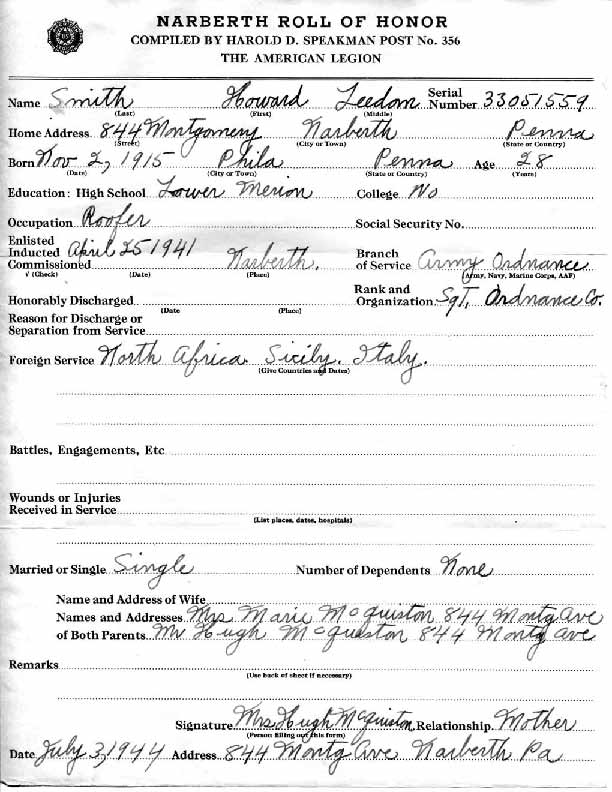 NARBERTH ROLL OF HONOR
COMPILED BY HAROLD D. SPEAKMAN POST No. 356
THE AMERICAN LEGION
Name Smith Howard Leedom Serial Number 33051559
(Last) (First) (Middle)
Home Address 844 Montgomery Narberth Penna
(Street) (City or Town) (State or Country)
Born Nov 2, 1915 Phila Penna Age 28
(Date) (City or Town) (State or Country) (Years)
Education: High School Lower Merion College No
Occupation Roofer Social Security No.
Enlisted
Inducted April 25 1941 Narberth. Branch of Service Army Ordnance
Commissioned
√ (Check) (Date) (Place) (Army, Navy, Marine Corps, AAF)
Honorably Discharged Rank and Organization Sgt, Ordnance Co.
(Date (Place)
Reason for Discharge or
Separation from Service
Foreign Service North Africa. Sicily. Italy.
(Give Countries and Dates)
Battles, Engagements, Etc
Wounds or Injuries
Received in Service
(List places, dates, hospitals)
Married or Single Single Number of Dependents None
Name and Address of Wife
Names and Addresses Mrs Marie McQuiston 844 Montg Ave
of Both Parents Mr Hugh McQuiston 844 Montg Ave
Remarks
(Use back of sheet if necessary)
Signature Mrs Hugh McQuiston Relationship Mother
(Person filling out this form)
Date July 3, 1944 Address 844 Montg Ave Narberth Pa